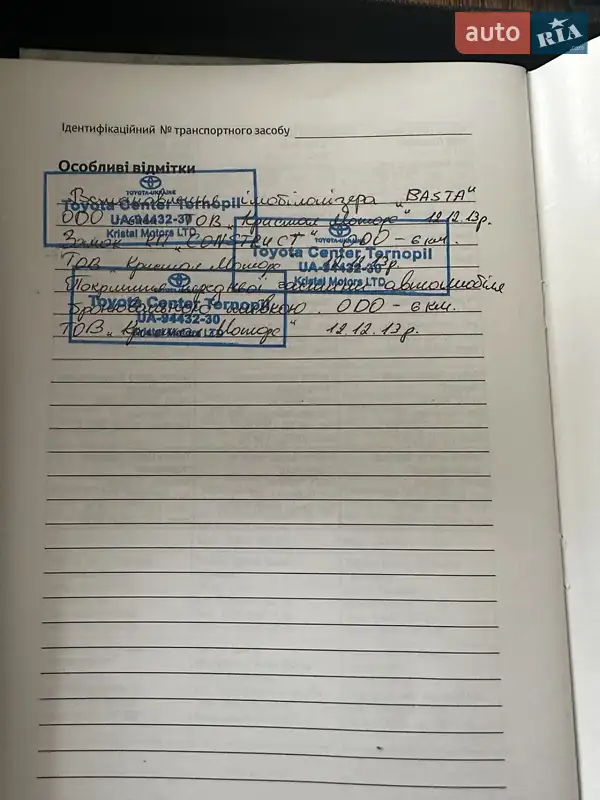 auto RIA .com
Ідентифікаційний № транспортного засобу
Особливі відмітки
Встановлення імобілайзера „BASTA"
TOYOTA-UKRAINE
Toyota Center Ternopil
UA-94432-30
Kristal Motors LTD
ОДО ТОВ „Кристал Моторс" 12.12.13р.
Замок КП „CONSTRUCT" ОДО - 6 км.
Toyota Center Ternopil
UA-94432-30
Kristal Motors LTD
ТОВ „Кристал Моторс
Покриття передньої частини автомобіля
плівкою. ОДО - 6 км.
Toyota Center Ternopil
UA-94432-30
Kristal Motors LTD
ТОВ „Кристал Моторс" 12.12.13р.